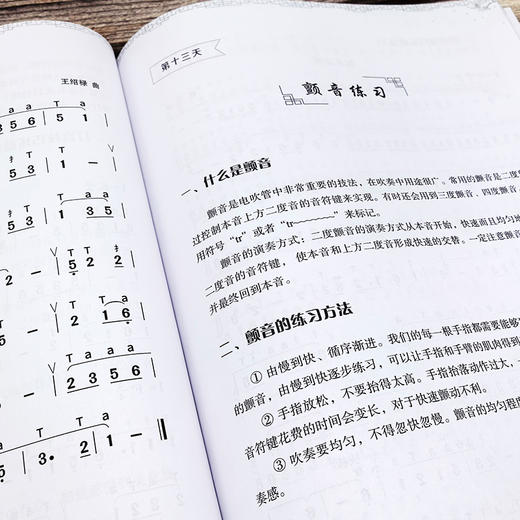 王绍禄 曲
a T a
3 5 6 5 1
T T
5 3 5 1 -
a
5 3 1 3 5
T T a
- 5 2 2
T a
- 2 1 6
T a a a
- 2 3 5 6
a T T a
5 3· 2 1 -
第十三天
颤音练习
一、什么是颤音
颤音是电吹管中非常重要的技法，在吹奏中用途很广。常用的颤音是二度
过控制本音上方二度音的音符键来实现。有时还会用到三度颤音、四度颤音
用符号“tr”或者“tr~~~~”来标记。
颤音的演奏方式：二度颤音的演奏方式从本音开始，快速而且均匀地
二度音的音符键，使本音和上方二度音形成快速的交替。一定注意颤音
并最终回到本音。
二、颤音的练习方法
① 由慢到快、循序渐进。我们的每一根手指都需要能够
的颤音，由慢到快逐步练习，可以让手指和手臂的肌肉得到
② 手指放松，不要抬得太高。手指抬落动作过大，
音符键花费的时间会变长，对于快速颤动不利。
③ 吹奏要均匀，不得忽快忽慢。颤音的均匀程度
奏感。